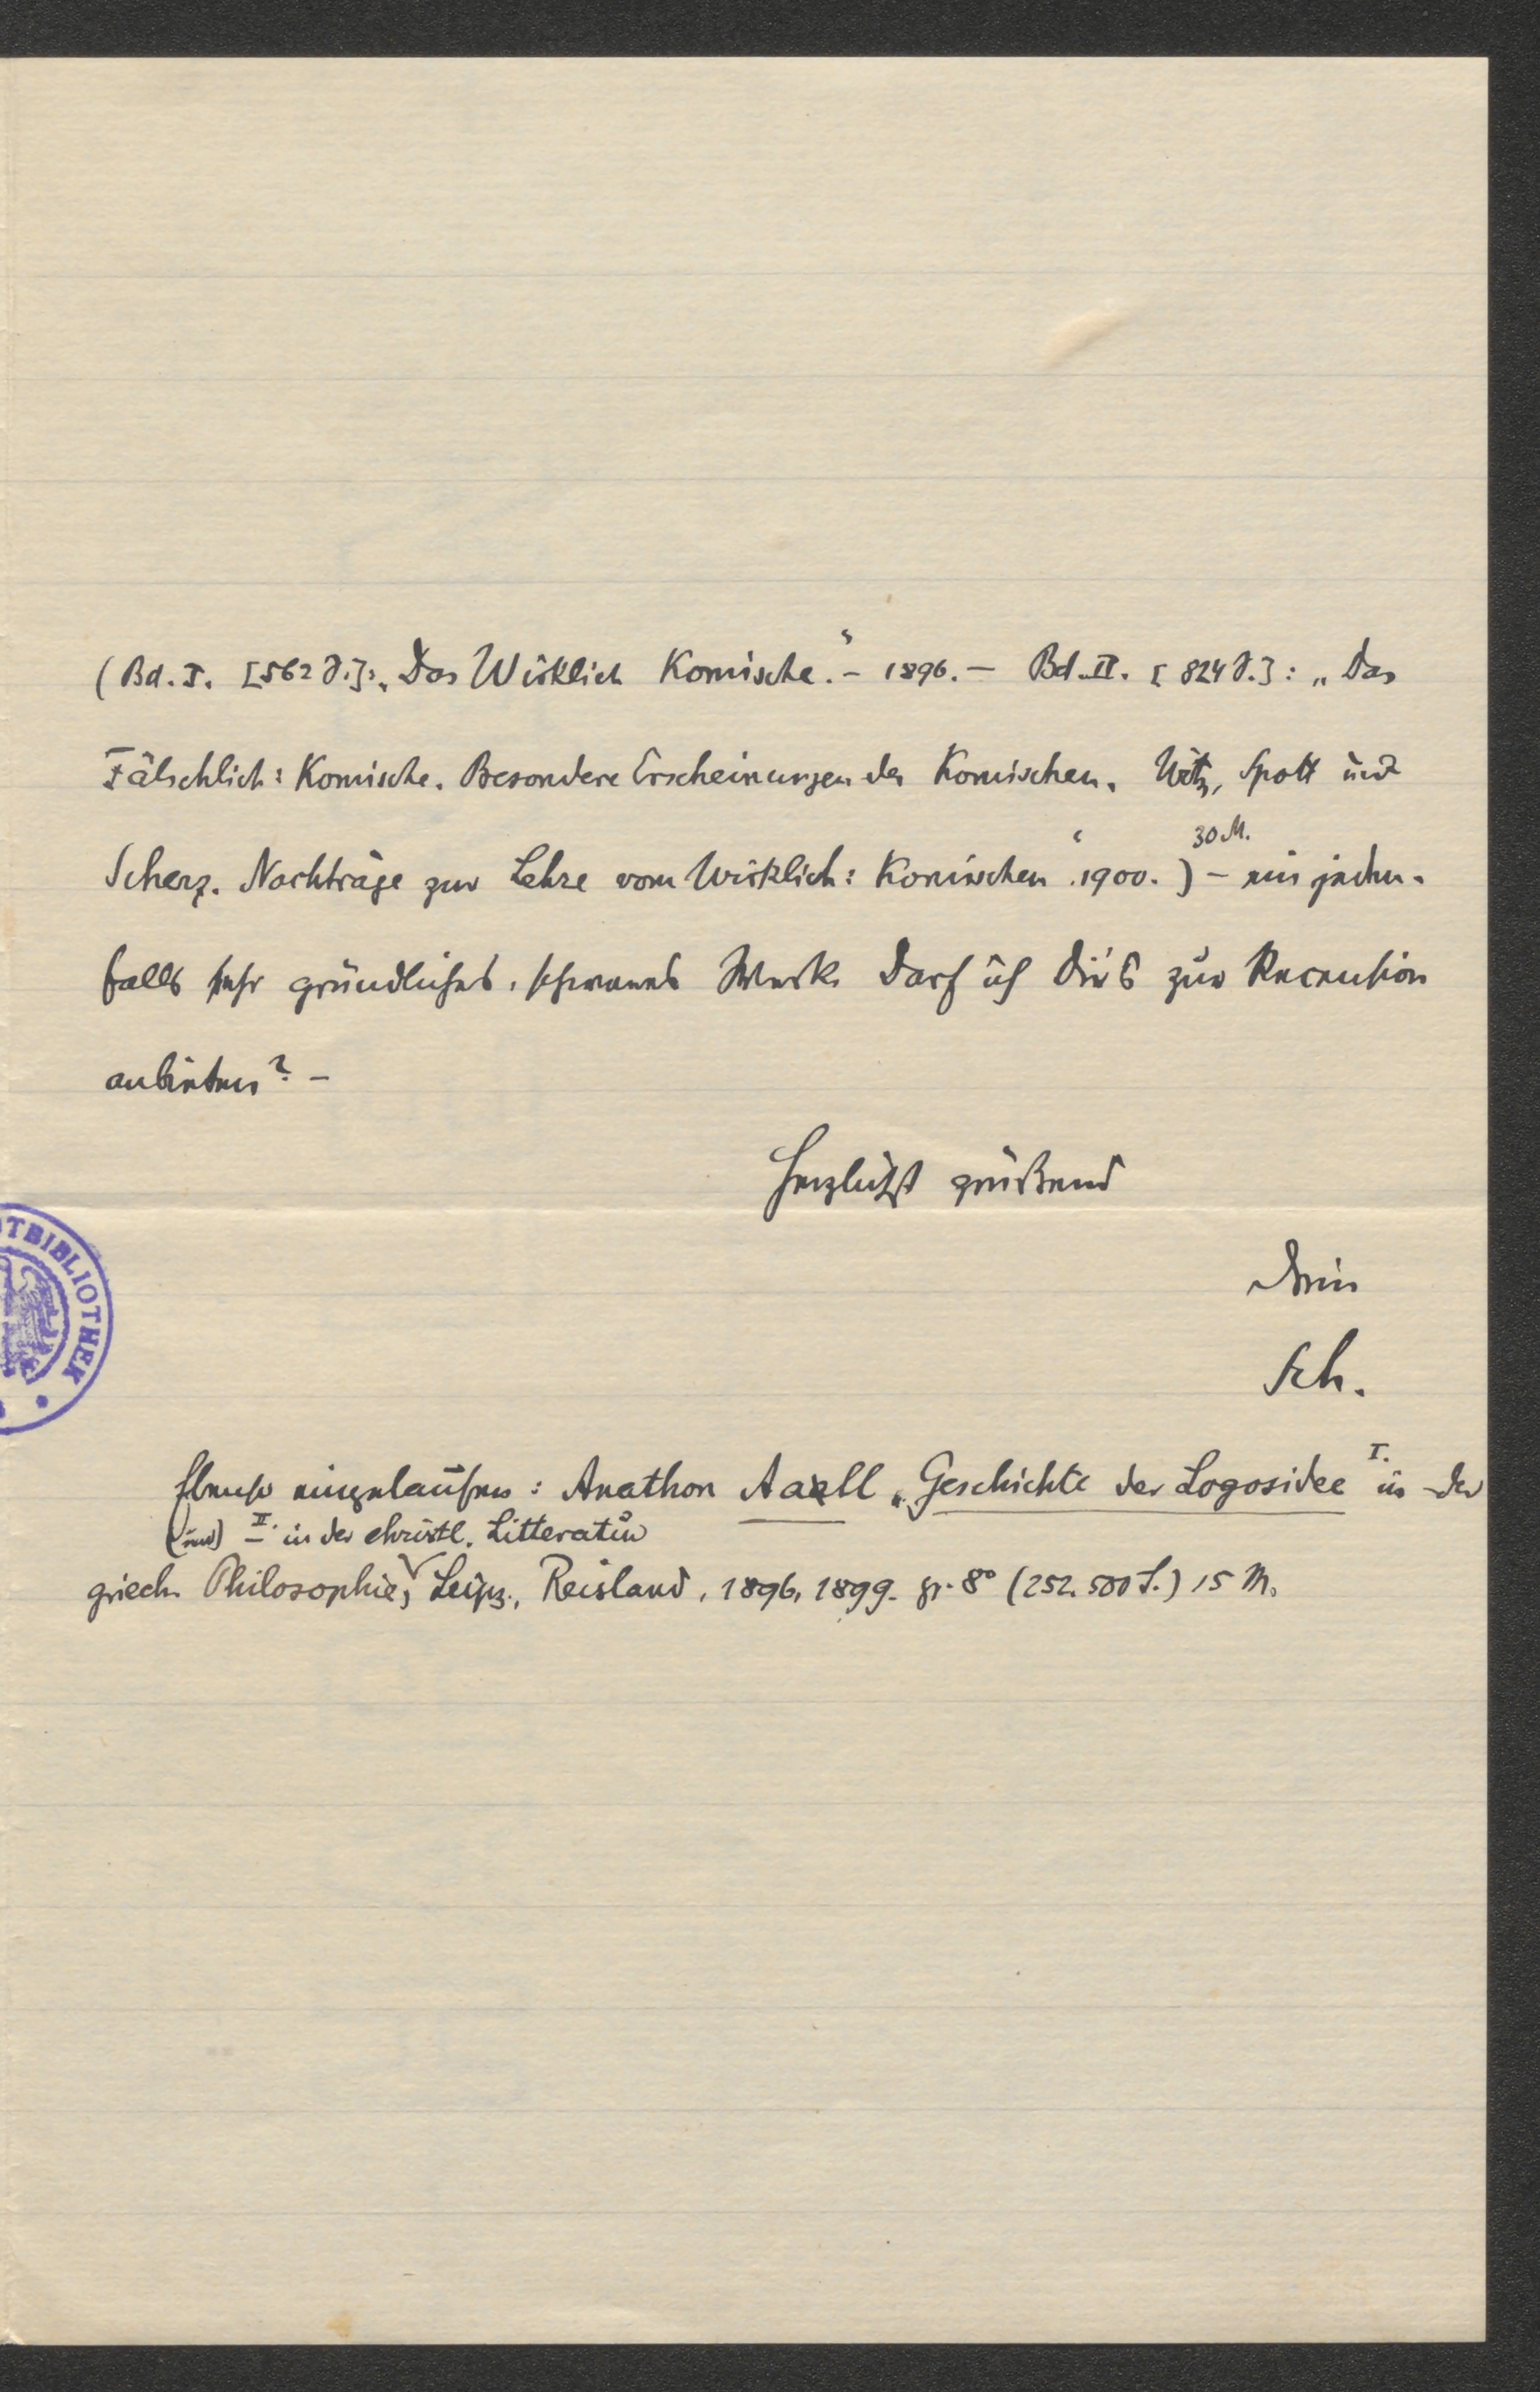 (Bd. I. [562 S.]: „Das Wirklich Komische.“ – 1896. – Bd. II. [824 S.]: „Das
Fälschlich: Komische. Besondere Erscheinungen des Komischen. Witz, Spott und
30 M.
Scherz. Nachträge zur Lehre vom Wirklich: Komischen“. 1900.) – ein jeden-
falls sehr gründliches, schweres Werk. Darf ich Dir's zur Recension
anbieten? –
Herzlichst grüßend
Dein
Sch.
TBIBLIOTHEK
Ebenso eingelaufen: Anathon Aall „Geschichte der Logosidee I. in der
(und) II. in der christl. Litteratur
griech. Philosophie, Leipz., Reisland, 1896, 1899. gr. 8° (252. 500 S.) 15 M.